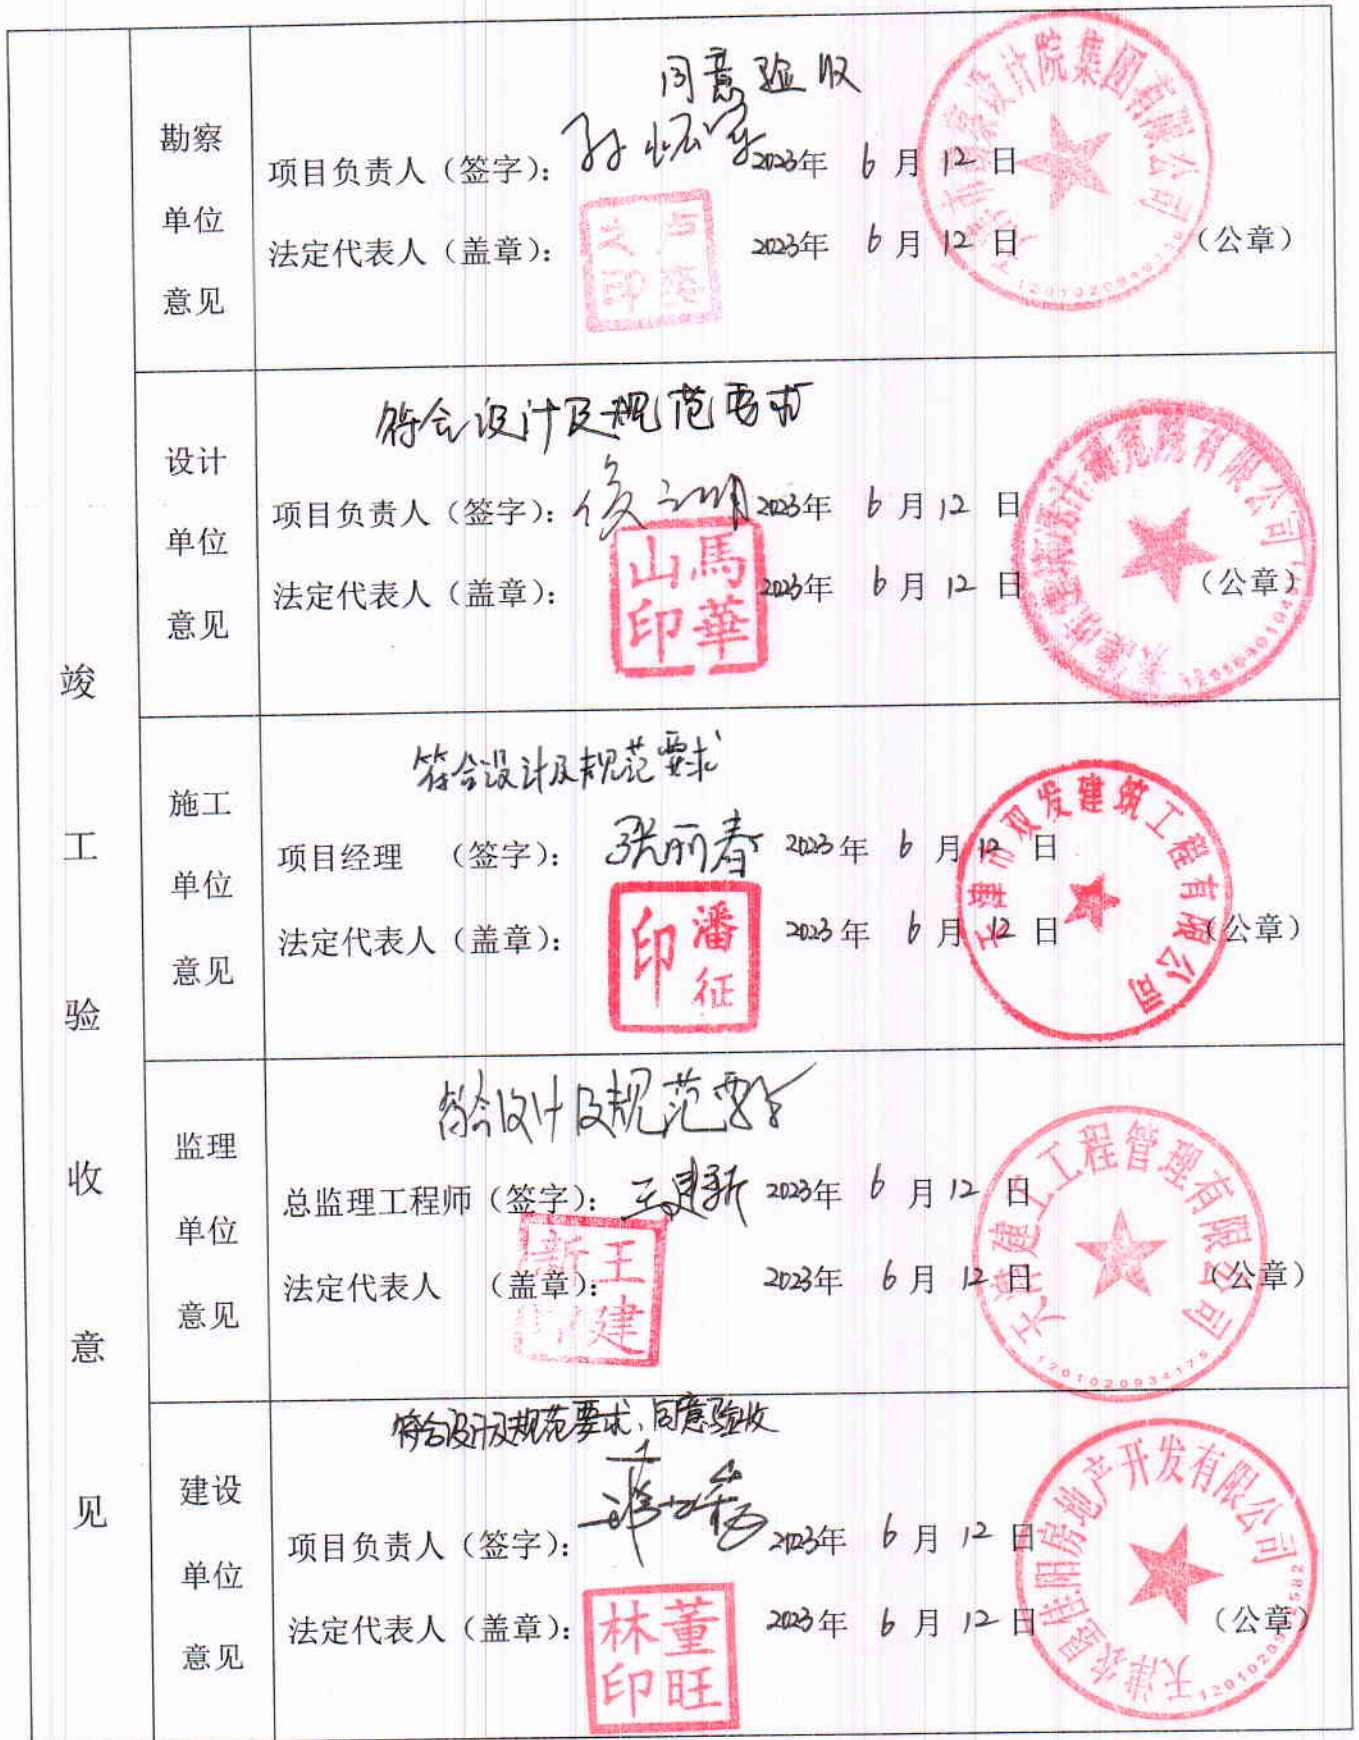 竣工验收意见
勘察单位意见
同意验收
项目负责人（签字）： 2023年 6月12日
法定代表人（盖章）： 2023年 6月12日 （公章）
之印
设计院集团有限公司
设计单位意见
符合设计及规范要求
项目负责人（签字）： 2023年 6月12日
法定代表人（盖章）： 2023年 6月12日 （公章）
馬華山印
设计研究院有限公司
施工单位意见
符合设计及规范要求
项目经理 （签字）： 张丽春 2023年 6月12日
法定代表人（盖章）： 2023年 6月12日 （公章）
潘征印
天津市双发建筑工程有限公司
监理单位意见
符合设计及规范要求
总监理工程师（签字）： 王建新 2023年 6月12日
法定代表人 （盖章）： 2023年 6月12日 （公章）
王建新
天津建工工程管理有限公司
1201020934175
建设单位意见
符合设计及规范要求，同意验收
项目负责人（签字）： 2023年 6月12日
法定代表人（盖章）： 2023年 6月12日 （公章）
董旺林印
佳阳房地产开发有限公司
天津